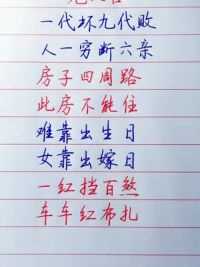 一代坏九代败
人一穷断六亲
房子四周路
此房不能住
难靠出生日
女靠出嫁日
一红挡百煞
车车红布扎